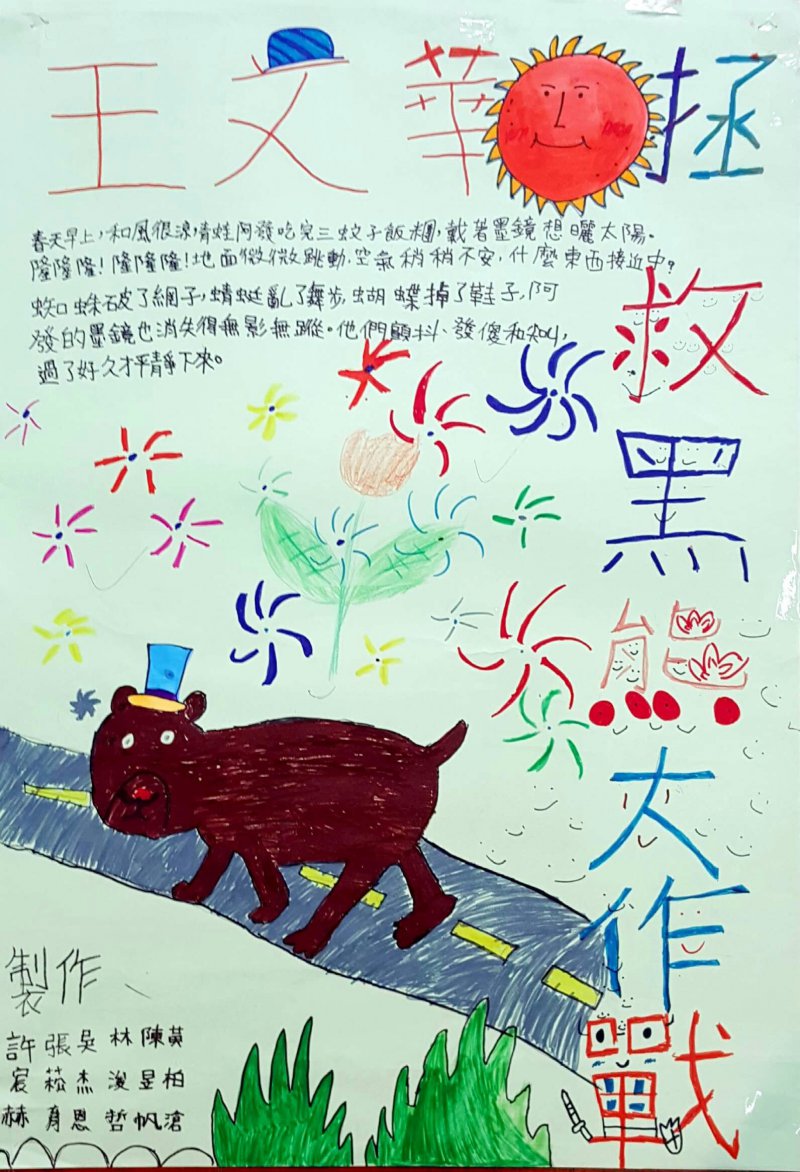 王文華
拯救黑熊大作戰
春天早上,和風很涼,青蛙阿發吃完三蚊子飯糰,戴著墨鏡想曬太陽。
隆隆隆!隆隆隆!地面微微跳動,空氣稍稍不安,什麼東西接近中?
蜘蛛破了網子,蜻蜓亂了舞步,蝴蝶掉了鞋子,阿
發的墨鏡也消失得無影無蹤。他們顫抖、發傻和尖叫,
過了好久才平靜下來。
製作、
許宸赫
張菘育
吳杰恩
林浚哲
陳昱帆
黃柏滄